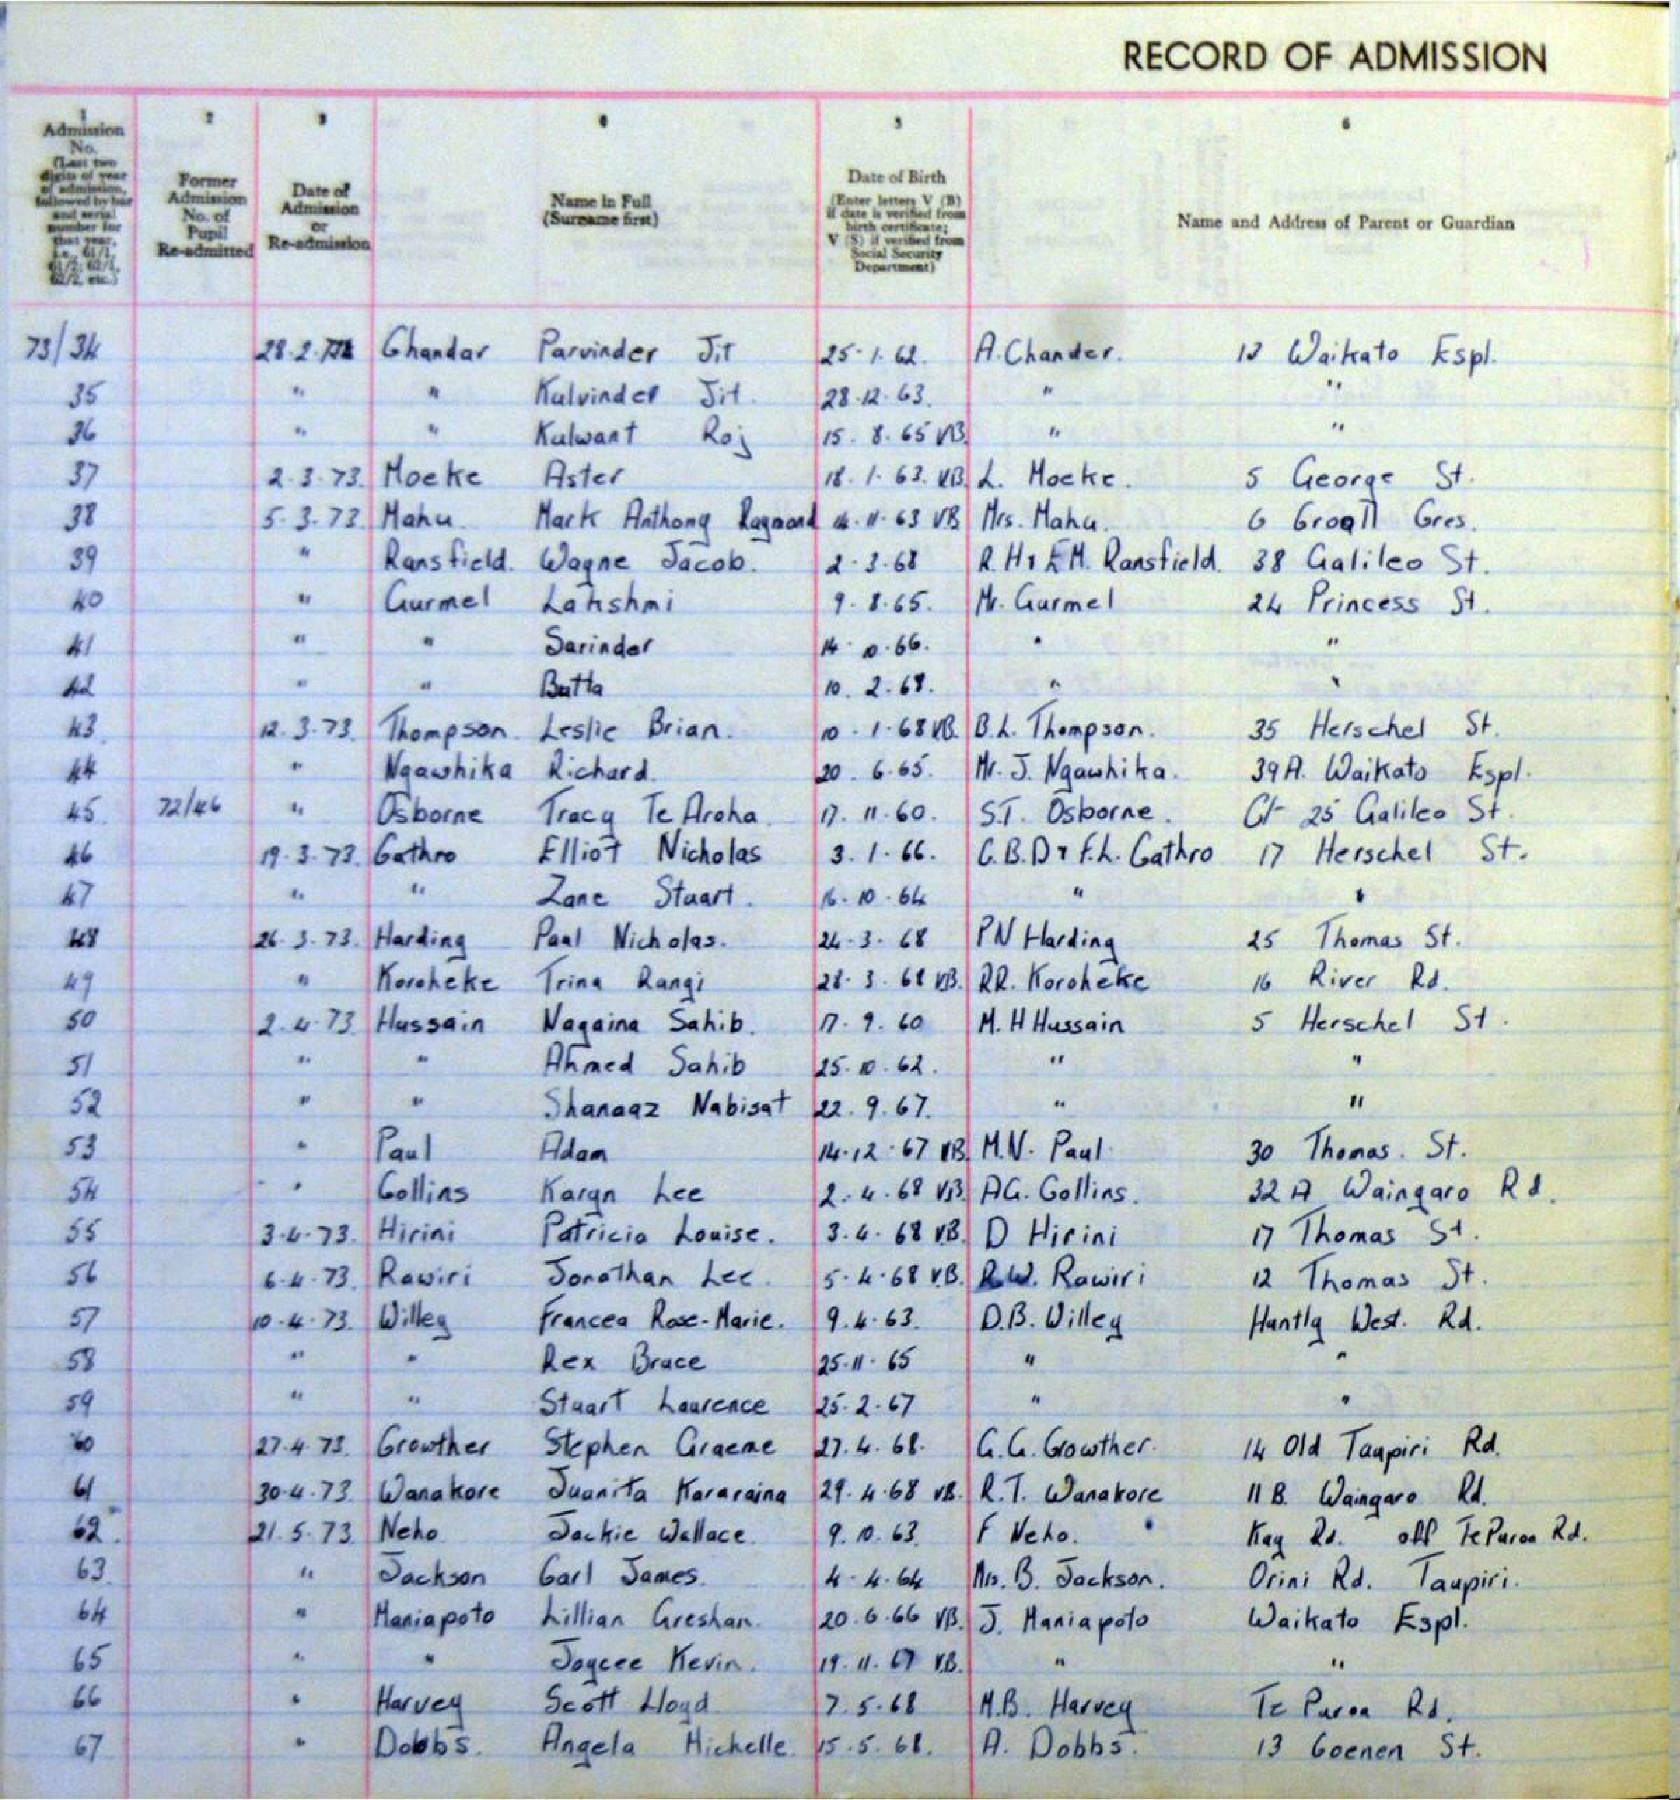 RECORD OF ADMISSION
1 2 3 4 5 6
Admission No. (Last two digits of year of admission, followed by bar and serial number for that year, i.e., 61/1, 61/2, 62/1, 62/2, etc.)
Former Admission No. of Pupil Re-admitted
Date of Admission or Re-admission
Name in Full (Surname first)
Date of Birth (Enter letters V (B) if date is verified from birth certificate; V (S) if verified from Social Security Department)
Name and Address of Parent or Guardian
73/34 28.2.73 Chandar Parvinder Jit 25.1.62. A. Chander. 12 Waikato Espl.
35 " " Kulvinder Jit. 28.12.63. " "
36 " " Kulwant Raj 15.8.65 VB. " "
37 2.3.73. Moeke Aster 18.1.63. VB. L. Moeke. 5 George St.
38 5.3.73 Mahu. Mark Anthony Raymond 14.11.63 VB Mrs. Mahu. 6 Croall Cres.
39 " Ransfield. Wayne Jacob. 2.3.68 R.H & E.M. Ransfield. 38 Galileo St.
40 " Gurmel Lakshmi 9.8.65. Mr. Gurmel 24 Princess St.
41 " " Sarinder 14.10.66. " "
42 " " Butta 10.2.68. " "
43 12.3.73. Thompson. Leslie Brian. 10.1.68 VB. B.L. Thompson. 35 Herschel St.
44 " Ngawhika Richard. 20.6.65. Mr. J. Ngawhika. 39A. Waikato Espl.
45. 72/46 " Osborne Tracy Te Aroha. 17.11.60. S.T. Osborne. C/- 25 Galileo St.
46 19.3.73. Gathro Elliot Nicholas 3.1.66. G.B.D & F.L. Gathro 17 Herschel St.
47 " " Zane Stuart. 16.10.64 " "
48 26.3.73. Harding Paul Nicholas. 24.3.68 P N Harding 25 Thomas St.
49 " Koroheke Trina Rangi 28.3.68 VB. R.R. Koroheke 16 River Rd.
50 2.4.73 Hussain Nagaina Sahib. 17.9.60 M.H Hussain 5 Herschel St.
51 " " Ahmed Sahib 25.10.62. " "
52 " " Shanaaz Nabisat 22.9.67. " "
53 " Paul Adam 14.12.67 VB. M.N. Paul 30 Thomas. St.
54 " Collins Karyn Lee 2.4.68 VB. A.G. Collins. 32 A Waingaro Rd.
55 3.4.73. Hirini Patricia Louise. 3.4.68 V.B. D Hirini 17 Thomas St.
56 6.4.73. Rawiri Jonathan Lee. 5.4.68 V.B. R.W. Rawiri 12 Thomas St.
57 10.4.73. Willey Francea Rose-Marie. 9.4.63. D.B. Willey Huntly West. Rd.
58 " " Rex Bruce 25.11.65 " "
59 " " Stuart Laurence 25.2.67 " "
60 27.4.73. Crowther Stephen Graeme 27.4.68. G.G. Crowther. 14 Old Taupiri Rd.
61 30.4.73. Wanakore Juanita Kararaina 29.4.68 VB. R.T. Wanakore 11 B. Waingaro Rd.
62. 21.5.73. Neho Jackie Wallace. 9.10.63. F Neho. Kay Rd. off Te Puroa Rd.
63. " Jackson Carl James. 4.4.64 Mrs. B. Jackson. Orini Rd. Taupiri.
64 " Maniapoto Lillian Greshan. 20.6.66 VB. J. Maniapoto Waikato Espl.
65 " " Joycee Kevin. 19.11.67 V.B. " "
66 " Harvey Scott Lloyd 7.5.68 M.B. Harvey Te Puroa Rd.
67 " Dobbs. Angela Michelle. 15.5.68. A. Dobbs. 13 Coenen St.